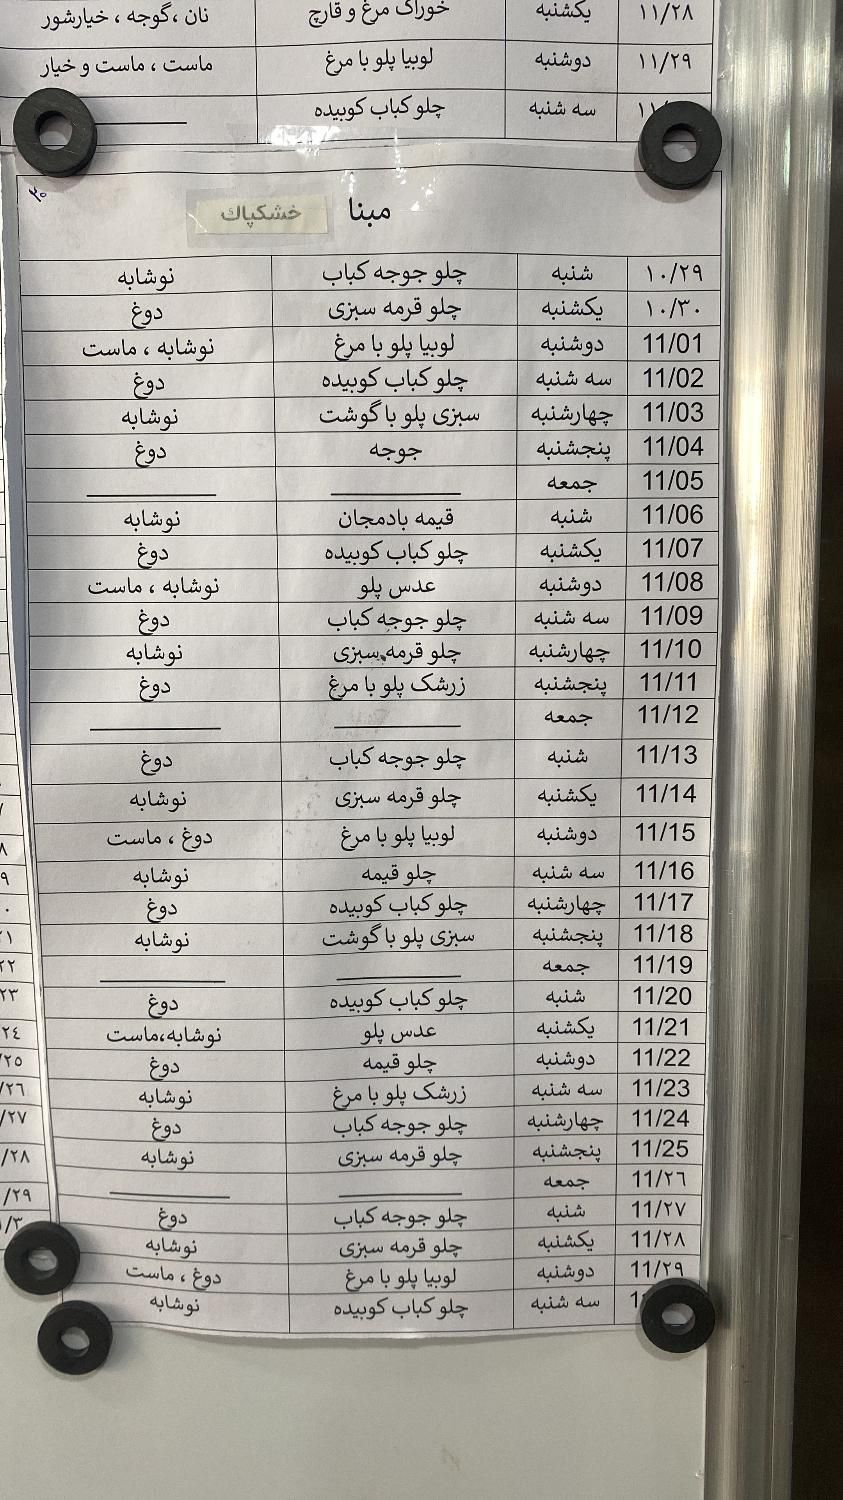 ۱۱/۲۸ یکشنبه خوراک مرغ و قارچ نان ،گوجه ، خیارشور
۱۱/۲۹ دوشنبه لوبیا پلو با مرغ ماست ، ماست و خیار
سه شنبه چلو کباب کوبیده
۳۰
مبنا خشکپاك
۱۰/۲۹ شنبه چلو جوجه کباب نوشابه
۱۰/۳۰ یکشنبه چلو قرمه سبزی دوغ
11/01 دوشنبه لوبیا پلو با مرغ نوشابه ، ماست
11/02 سه شنبه چلو کباب کوبیده دوغ
11/03 چهارشنبه سبزی پلو با گوشت نوشابه
11/04 پنجشنبه جوجه دوغ
11/05 جمعه
11/06 شنبه قیمه بادمجان نوشابه
11/07 یکشنبه چلو کباب کوبیده دوغ
11/08 دوشنبه عدس پلو نوشابه ، ماست
11/09 سه شنبه چلو جوجه کباب دوغ
11/10 چهارشنبه چلو قرمه سبزی نوشابه
11/11 پنجشنبه زرشک پلو با مرغ دوغ
11/12 جمعه
11/13 شنبه چلو جوجه کباب دوغ
11/14 یکشنبه چلو قرمه سبزی نوشابه
11/15 دوشنبه لوبیا پلو با مرغ دوغ ، ماست
11/16 سه شنبه چلو قیمه نوشابه
11/17 چهارشنبه چلو کباب کوبیده دوغ
11/18 پنجشنبه سبزی پلو با گوشت نوشابه
11/19 جمعه
11/20 شنبه چلو کباب کوبیده دوغ
11/21 یکشنبه عدس پلو نوشابه،ماست
11/22 دوشنبه چلو قیمه دوغ
11/23 سه شنبه زرشک پلو با مرغ نوشابه
11/24 چهارشنبه چلو جوجه کباب دوغ
11/25 پنجشنبه چلو قرمه سبزی نوشابه
11/٢٦ جمعه
11/٢٧ شنبه چلو جوجه کباب دوغ
11/٢٨ یکشنبه چلو قرمه سبزی نوشابه
11/٢٩ دوشنبه لوبیا پلو با مرغ دوغ ، ماست
سه شنبه چلو کباب کوبیده نوشابه